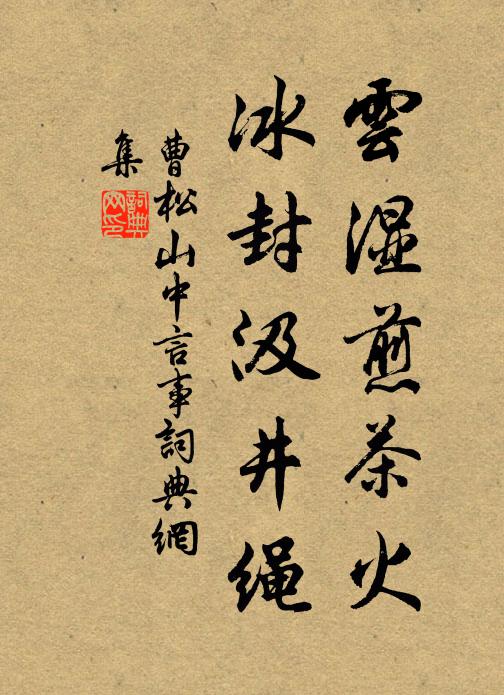 雲濕煎茶火
冰封汲井繩
曹松山中言事詞典網
集
詞典
网印